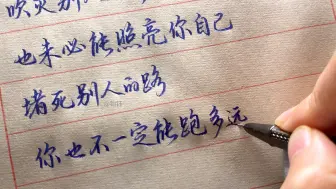 吹灭别
也未必能照亮你自己
堵死别人的路
你也不一定能跑多远